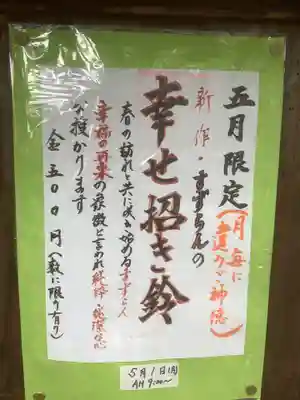 五月限定(月毎に
新作・すずらんの
幸せ招き鈴
春の訪れと共に咲き始めるすずらん
幸福の再来の象徴と言われ純粋・純潔の心
が授かります
金五00円(数に限り有り)
5月1日(月)
AM 9:00〜